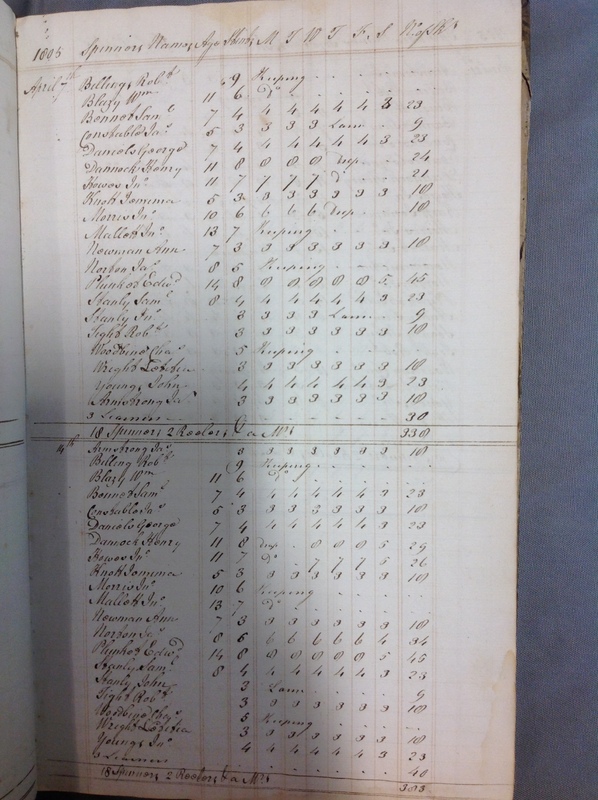 1805 Spinners Names Age Stint M T W T F S No of Sks
April 7th Billing Robt 9 Reeping
Blazy Wm 11 6 Do
Bennet Saml 7 4 4 4 4 4 4 3 23
Constable Jas 5 3 3 3 3 Learn 9
Daniels George 7 4 4 4 4 4 4 3 23
Dannock Henry 11 8 8 8 8 24
Howes Jno 11 7 7 7 7 21
Knott Jemima 5 3 3 3 3 3 3 3 18
Morris Jno 10 6 6 6 6 18
Mallett Jno 13 7 Reeping
Newman Ann 7 3 3 3 3 3 3 3 18
Norton Jas 8 5 Reeping
Plunket Edwd 14 8 8 8 8 8 8 5 45
Stanly Saml 8 4 4 4 4 4 4 3 23
Stanly Jno 3 3 3 3 Learn 9
Tight Robt 3 3 3 3 3 3 3 18
Woodbine Chas 5 Reeping
Wright Letitia 3 3 3 3 3 3 3 18
Youngs John 4 4 4 4 4 4 3 23
Armstrong Jas 3 3 3 3 3 3 3 18
3 Learners 30
18 Spinners 2 Reelers & a Mrs 338
14th Armstrong Jas 3 3 3 3 3 3 3 18
Billing Robt 9 Reeping
Blazy Wm 11 6 Do
Bennet Saml 7 4 4 4 4 4 4 3 23
Constable Jas 5 3 3 3 3 3 3 3 18
Daniels George 7 4 4 4 4 4 4 3 23
Dannock Henry 11 8 8 8 8 5 29
Howes Jno 11 7 Do 7 7 7 5 26
Knott Jemima 5 3 3 3 3 3 3 3 18
Morris Jno 10 6 Reeping
Mallett Jno 13 7 Do
Newman Ann 7 3 3 3 3 3 3 3 18
Norton Jas 8 6 6 6 6 6 6 4 34
Plunket Edwd 14 8 8 8 8 8 8 5 45
Stanly Saml 8 4 4 4 4 4 4 3 23
Stanly John 3 Learn 9
Tight Robt 3 3 3 3 3 3 3 18
Woodbine Chas 5 Reeping
Wright Letitia 3 3 3 3 3 3 3 18
Youngs Jno 4 4 4 4 4 4 3 23
3 Learners 40
18 Spinners 2 Reelers & a Mrs 383